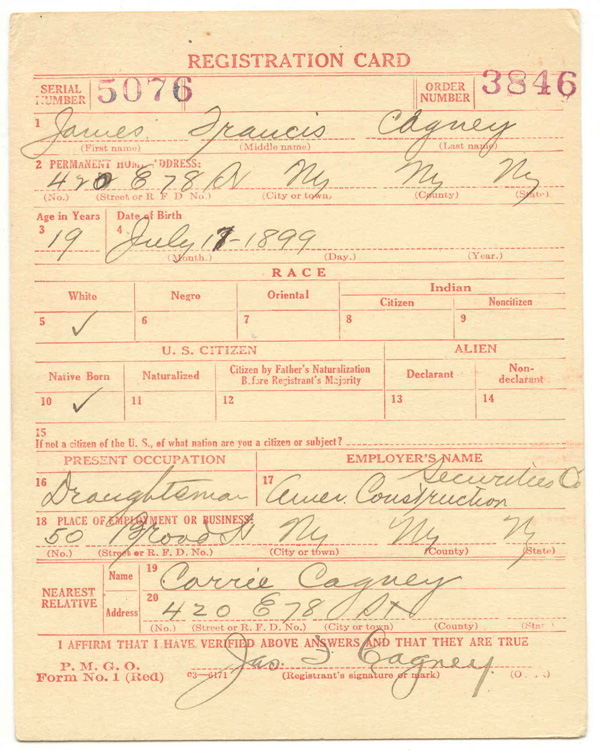 REGISTRATION CARD
SERIAL NUMBER 5076 ORDER NUMBER 3846
1 James Francis Cagney
(First name) (Middle name) (Last name)
2 PERMANENT HOME ADDRESS:
420 E 78 St Ny Ny Ny
(No.) (Street or R. F. D. No.) (City or town) (County) (State)
Age in Years Date of Birth
3 19 4 July 17-1899
(Month.) (Day.) (Year.)
RACE
White Negro Oriental Indian
Citizen Noncitizen
5 ✓ 6 7 8 9
U. S. CITIZEN ALIEN
Native Born Naturalized Citizen by Father's Naturalization Before Registrant's Majority Declarant Non-declarant
10 ✓ 11 12 13 14
15
If not a citizen of the U. S., of what nation are you a citizen or subject?
PRESENT OCCUPATION EMPLOYER'S NAME
16 Draughtsman 17 Amer. Construction Securities Co
18 PLACE OF EMPLOYMENT OR BUSINESS:
50 Broad St Ny Ny Ny
(No.) (Street or R. F. D. No.) (City or town) (County) (State)
NEAREST RELATIVE
Name 19 Carrie Cagney
Address 20 420 E 78 St
(No.) (Street or R. F. D. No.) (City or town) (County) (State)
I AFFIRM THAT I HAVE VERIFIED ABOVE ANSWERS AND THAT THEY ARE TRUE
P. M. G. O.
Form No. 1 (Red) 03—6171 Jas. F. Cagney
(Registrant's signature or mark)